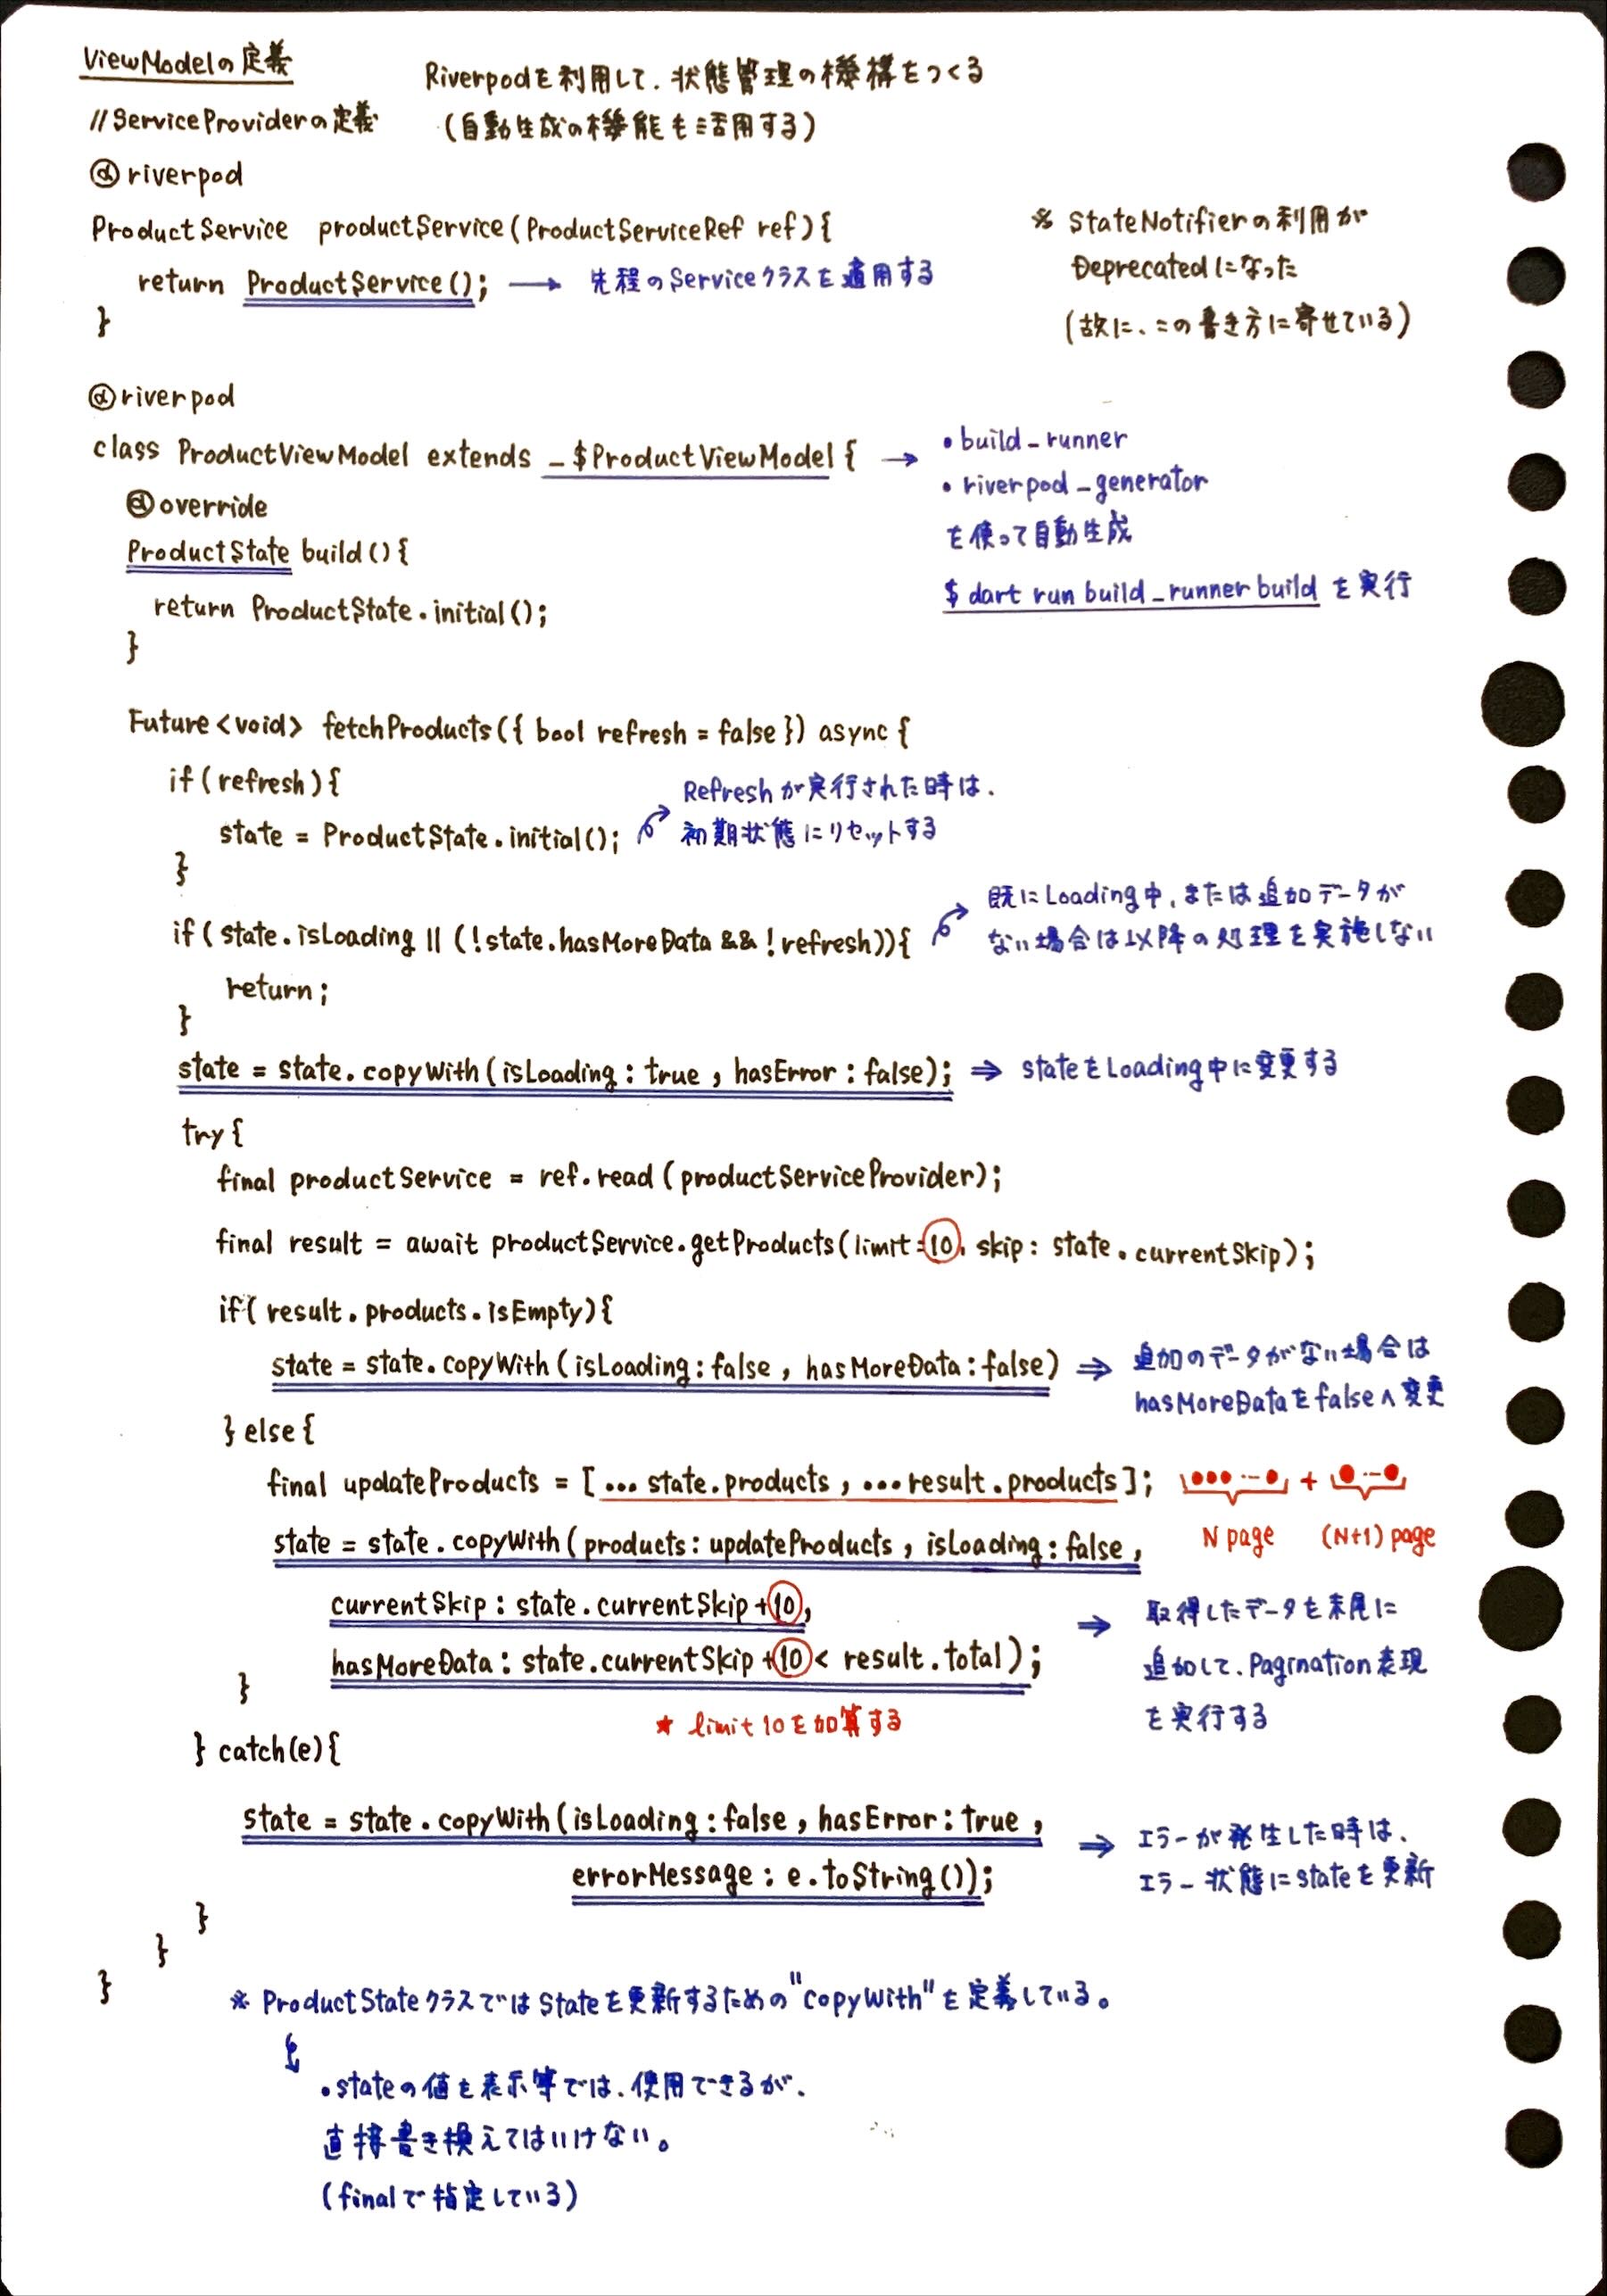 ViewModelの定義
Riverpodを利用して、状態管理の機構をつくる
(自動生成の機能も活用する)
//ServiceProviderの定義
@riverpod
ProductService productService(ProductServiceRef ref){
return ProductService(); → 先程のServiceクラスを適用する
}
※ StateNotifierの利用が
Deprecatedになった
(故に、この書き方に寄せている)
@riverpod
class ProductViewModel extends _$ProductViewModel{ →
• build_runner
• riverpod_generator
を使って自動生成
$ dart run build_runner build を実行
@override
ProductState build(){
return ProductState.initial();
}
Future<void> fetchProducts({ bool refresh = false }) async {
if(refresh){
state = ProductState.initial();
Refreshが実行された時は、
初期状態にリセットする
}
if( state.isLoading || (!state.hasMoreData && !refresh)){
既にLoading中、または追加データが
ない場合は以降の処理を実施しない
return;
}
state = state.copyWith(isLoading: true, hasError: false); ⇒ stateをLoading中に変更する
try{
final productService = ref.read(productServiceProvider);
final result = await productService.getProducts(limit:10, skip: state.currentSkip);
if( result.products.isEmpty){
state = state.copyWith(isLoading: false, hasMoreData: false) ⇒
追加のデータがない場合は
hasMoreDataをfalseへ変更
} else {
final updateProducts = [... state.products, ...result.products];
●●● ··· ● + ● ··· ●
N page (N+1) page
state = state.copyWith(products: updateProducts, isLoading: false,
currentSkip: state.currentSkip+10,
hasMoreData: state.currentSkip+10 < result.total);
⇒ 取得したデータを末尾に
追加して、Pagination表現
を実行する
}
★ limit10を加算する
} catch(e){
state = state.copyWith(isLoading: false, hasError: true,
errorMessage: e.toString());
⇒ エラーが発生した時は、
エラー状態にstateを更新
}
}
}
※ ProductStateクラスではStateを更新するための"copyWith"を定義している。
• stateの値を表示等では、使用できるが、
直接書き換えてはいけない。
(finalで指定している)